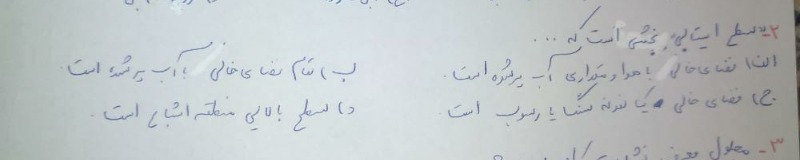 ۲- سطح ایستابی، بخشی است که ...
الف) فضای خالی با هوا و مقداری آب پر شده است. ب) تمام فضای خالی با آب پر شده است.
ج) فضای خالی یک نمونه سنگ یا رسوب است د) سطح بالایی منطقه اشباع است.
۳-